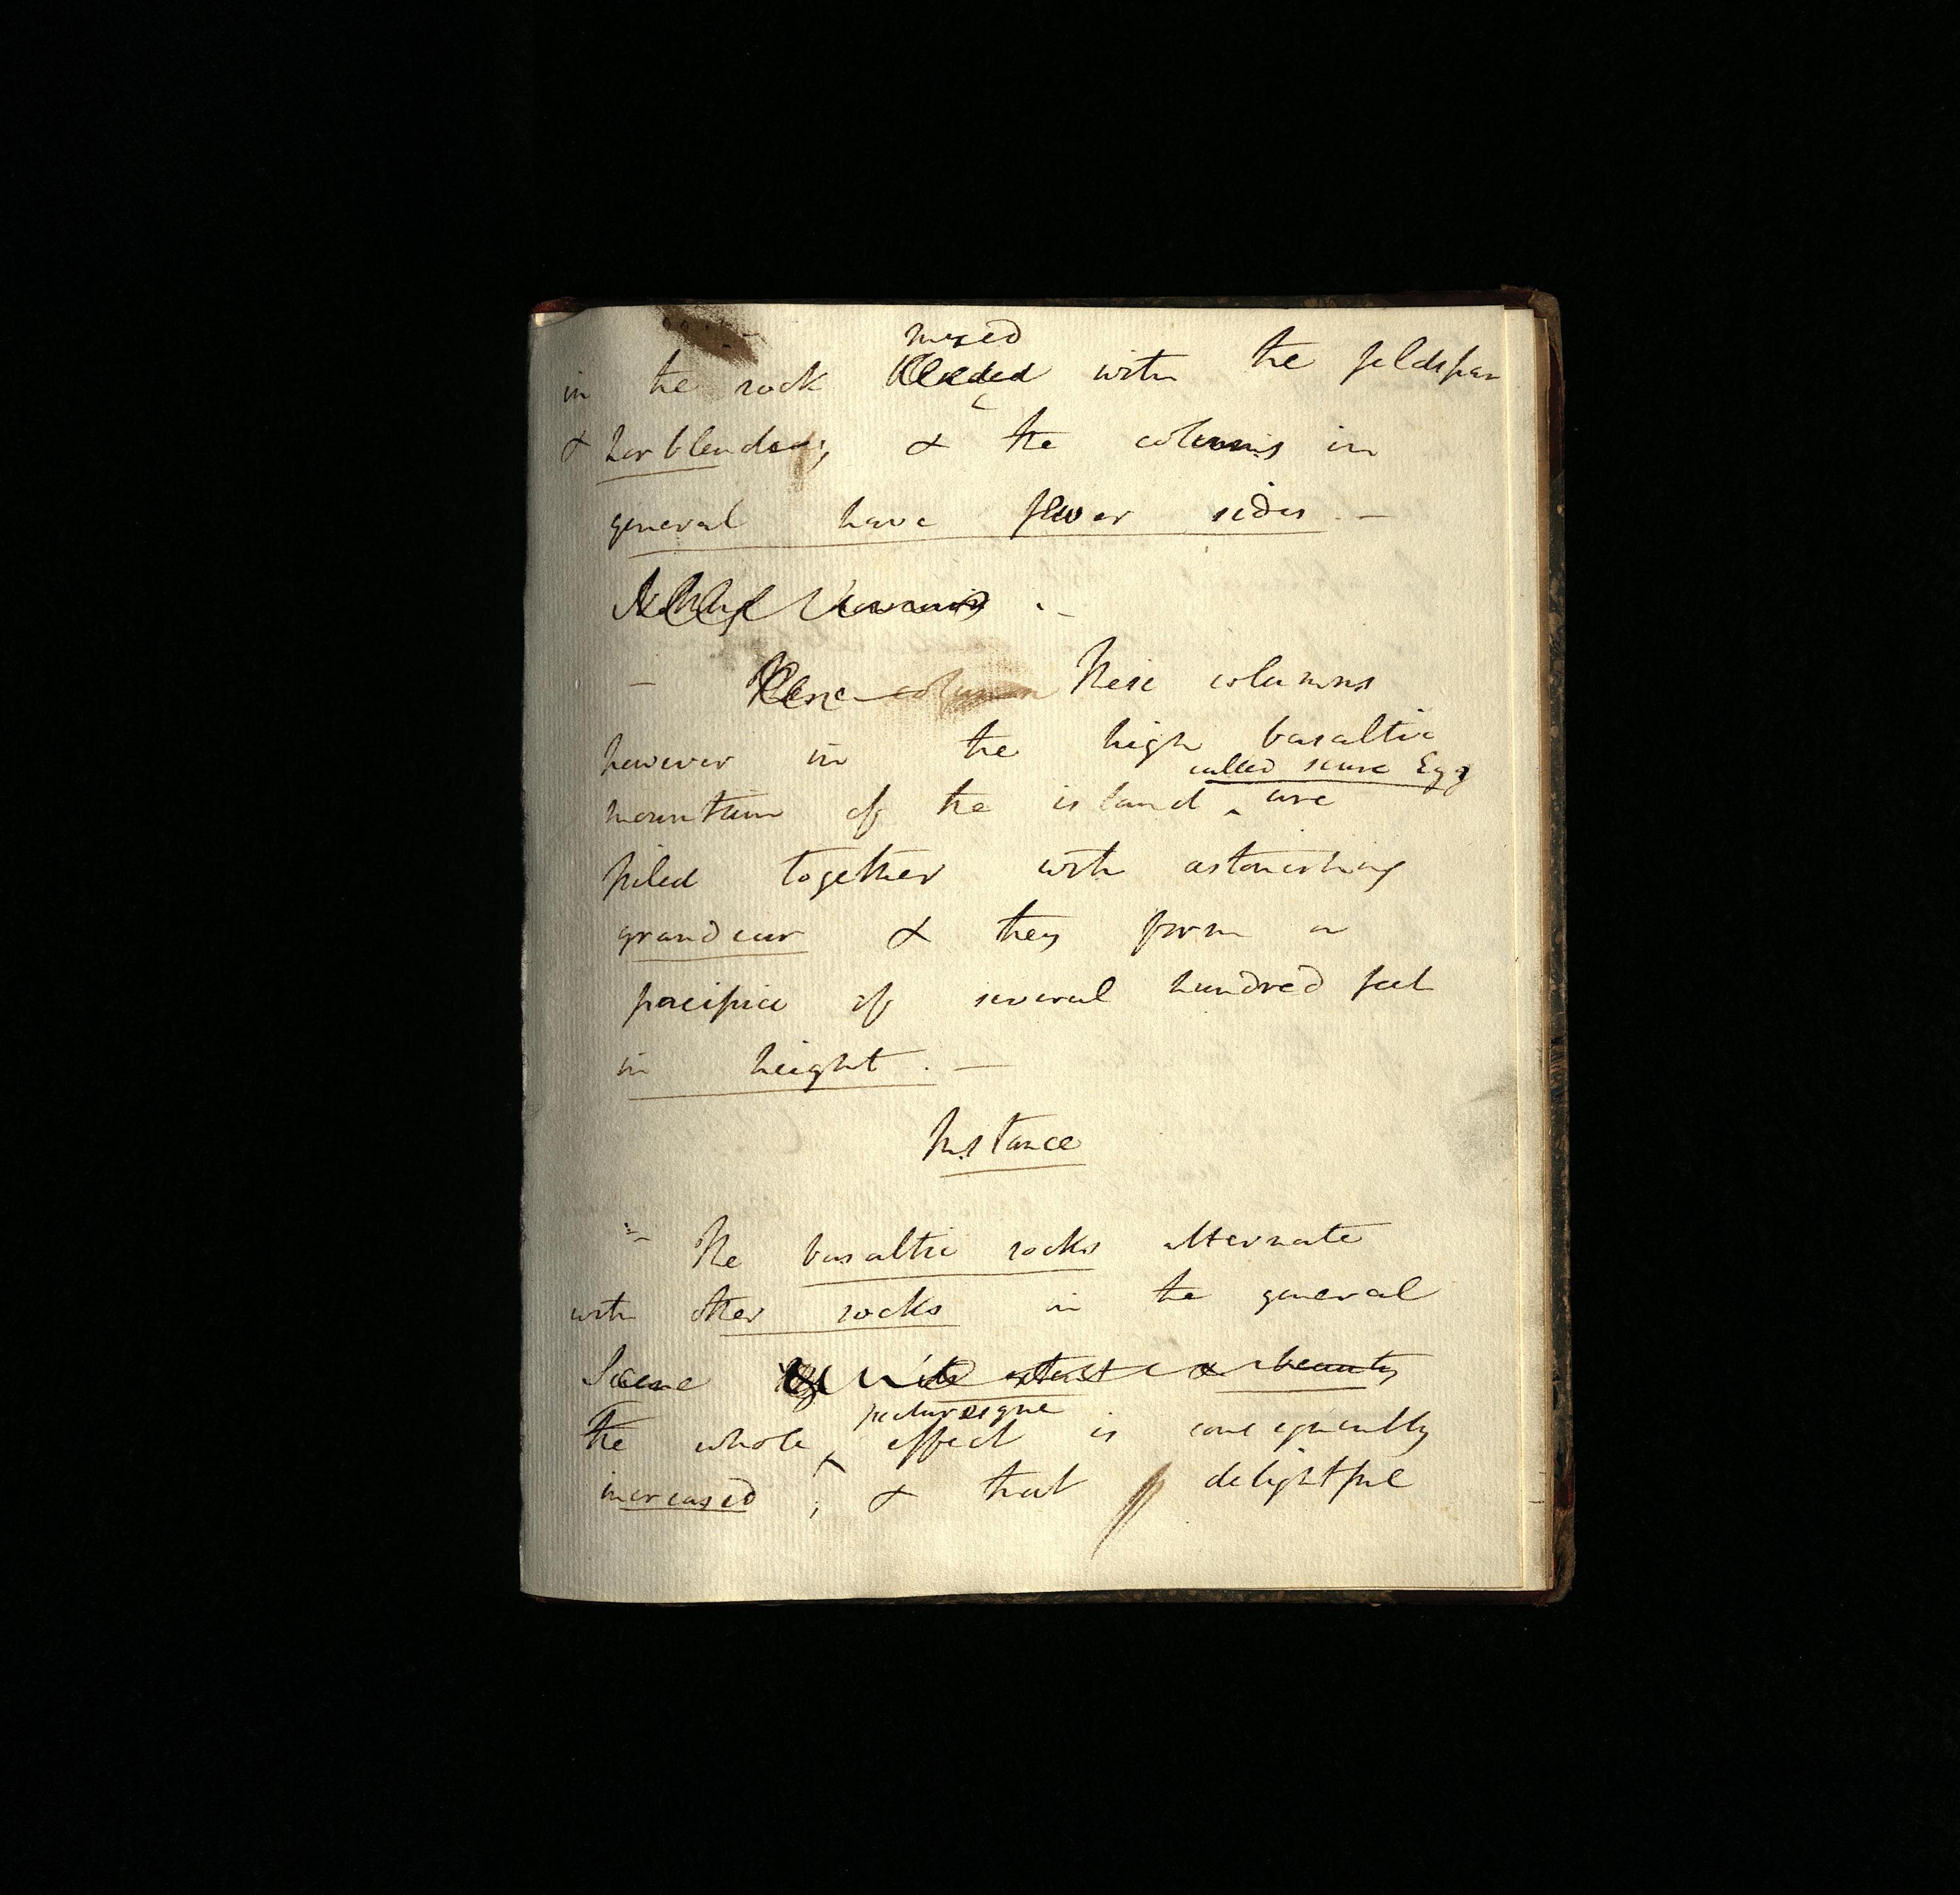 mixed
in the rock blended with the feldspar
& horblende; & the columns in
general have fewer sides. —
— These column These columns
however in the high basaltic
called scure Egg
mountain of the island ^ are
piled together with astonishing
grandeur & they form a
precipice of several hundred feet
in height. —
Instance
— The basaltic rocks alternate
with other rocks in the general
Scene & beauty
picturesque
the whole ^ effect is consequently
increased; & that delightful